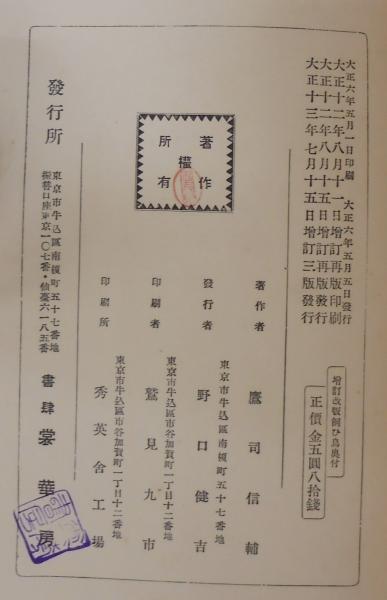 大正六年五月一日印刷　大正六年五月五日發行
大正十二年八月十一日增訂再版印刷
大正十二年八月十五日增訂再版發行
大正十三年七月十五日增訂三版發行
增訂改版飼ひ鳥奥付
正價金五圓八拾錢
著作權所有
著作者　鷹司信輔
東京市牛込區南榎町五十七番地
發行者　野口健吉
東京市牛込區市谷加賀町一丁目十二番地
印刷者　鷲見九市
東京市牛込區市谷加賀町一丁目十二番地
印刷所　秀英舍工場
發行所
東京市牛込區南榎町五十七番地
振替口座東京一〇七番・仙臺六一八五番
書肆　裳華房